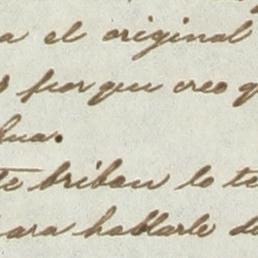 a el original
porque creo q
hua.
te briban lo te
para hablarle de